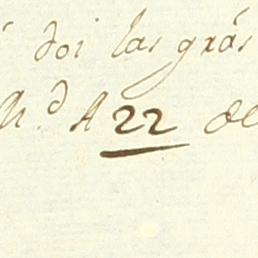 doi las grãs
M.d A 22 de